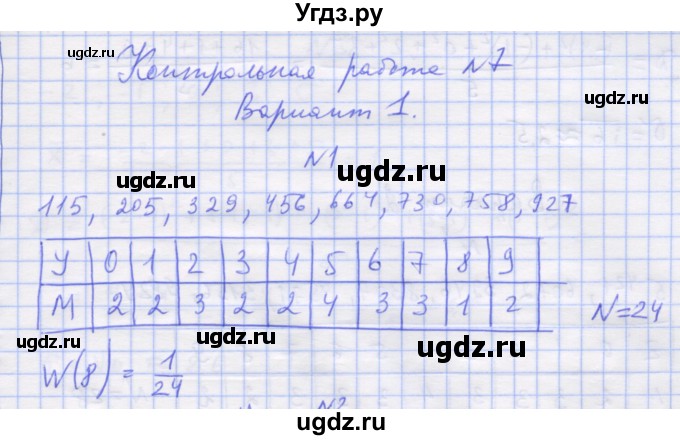 Угдз.ру
Контрольная работа N7
Вариант 1.
N1
115, 205, 329, 456, 664, 730, 758, 927
У 0 1 2 3 4 5 6 7 8 9
М 2 2 3 2 2 4 3 3 1 2
N=24
W(8) = 1/24
N2
ugdz.ru
ugdz.ru
ugdz.ru
ugdz.ru
ugdz.ru
ugdz.ru
ugdz.ru
ugdz.ru